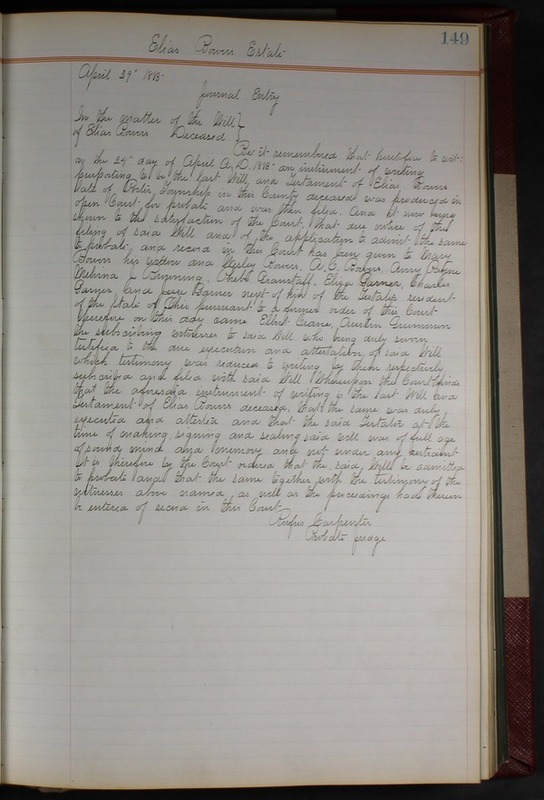 149
Elias Bowers Estate
April 29" 1885
Journal Entry
In the matter of the Will
of Elias Bowers Deceased
Be it remembered that heretofore to wit:
on the 24th day of April A.D. 1885 an instrument of writing
purporting to be the last Will and Testament of Elias Bowers
late of Township in this County deceased was produced in
open Court for probate and was then filed. And it now being
shown to the satisfaction of the Court, that due notice of the
filing of said Will and of the application to admit the same
to probate, and record in this Court has been given to Mary
Bowers his widow and Wesley Bowers, A. C. Bowers, Amy
Phebe Eliza Garner, Charles
Garner and Garner next of kin of the Testator resident
of the State of Ohio pursuant to a former order of this Court
Therefore on this day came Elbert Crane, Austin
the subscribing witnesses to said Will who being duly sworn
testified to the due execution and attestation of said Will
which testimony was reduced to writing by them respectively
subscribed and filed with said Will Whereupon the Court finds
that the aforesaid instrument of writing is the last Will and
Testament of Elias Bowers deceased, that the same was duly
executed and attested and that the said Testator at the
time of making, signing and sealing said will was of full age
of sound mind and memory and not under any restraint
It is therefore by the Court ordered that the said Will be admitted
to probate and that the same together with the testimony of the
witnesses above named as well as the proceedings had therein
be entered of record in this Court.
Rufus Carpenter
Probate Judge